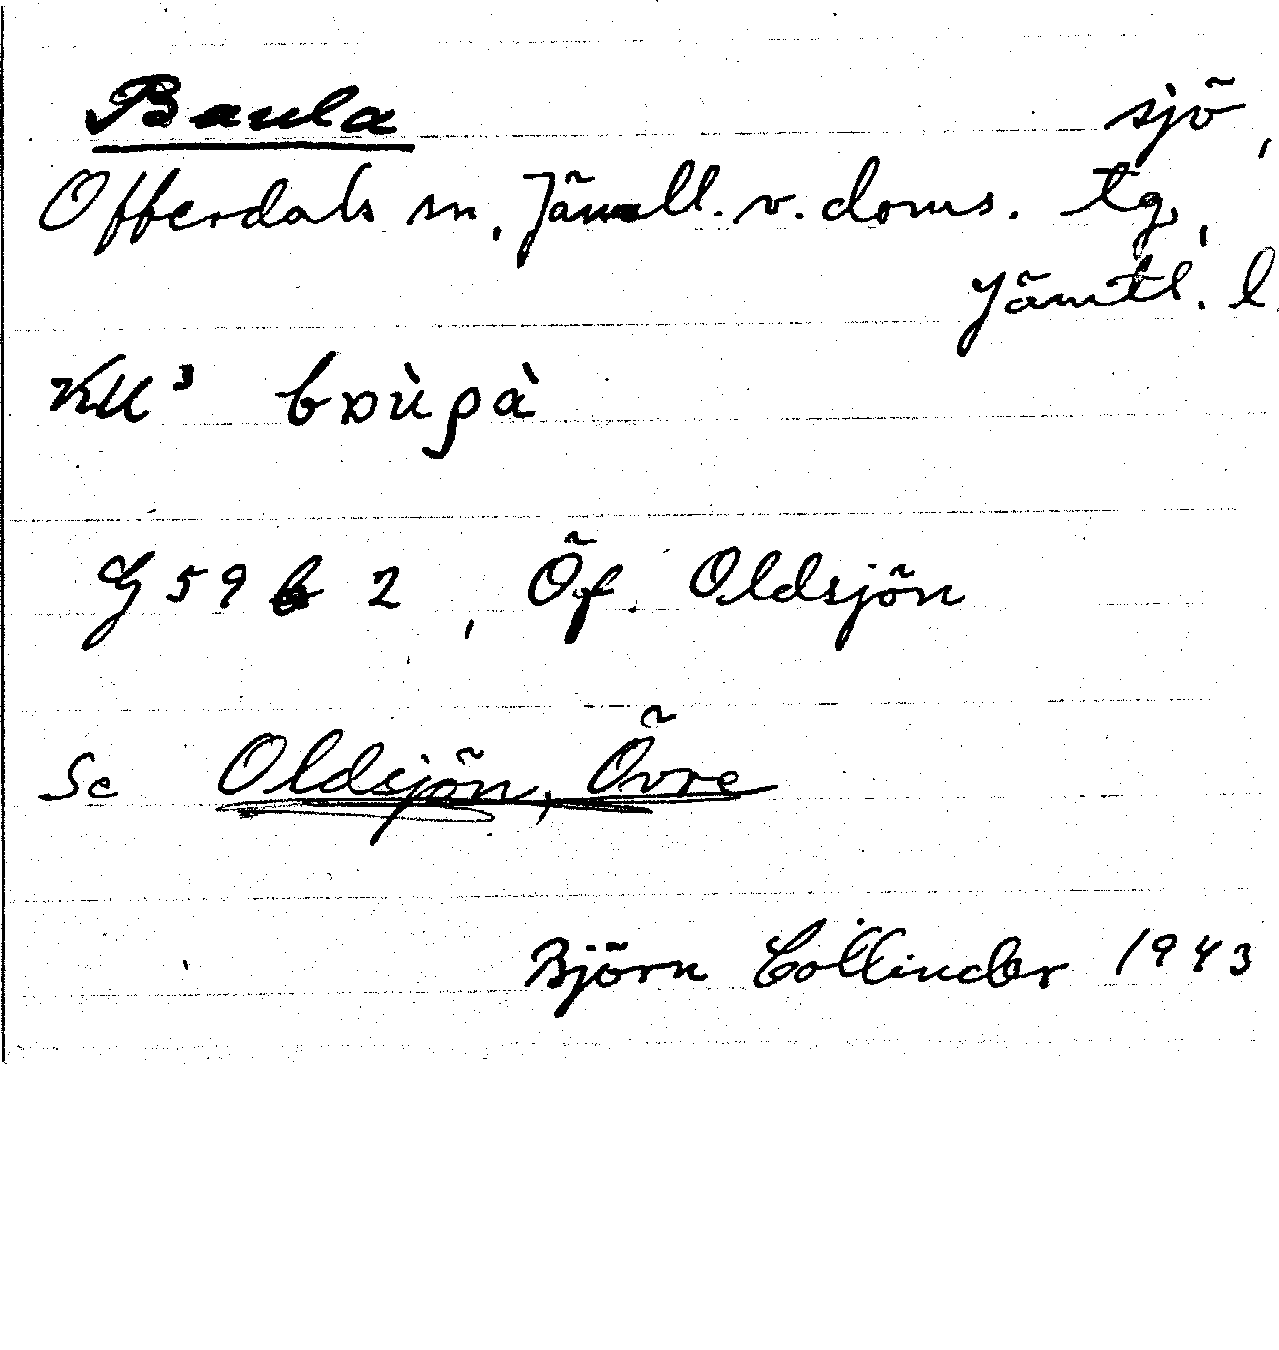 Baula sjö,
Offerdals sn, Jämtl. v. doms. tg,
Jämtl. l.
G 59 b 2, Öf. Oldsjön
Se Oldsjön, Övre
Björn Collinder 1943